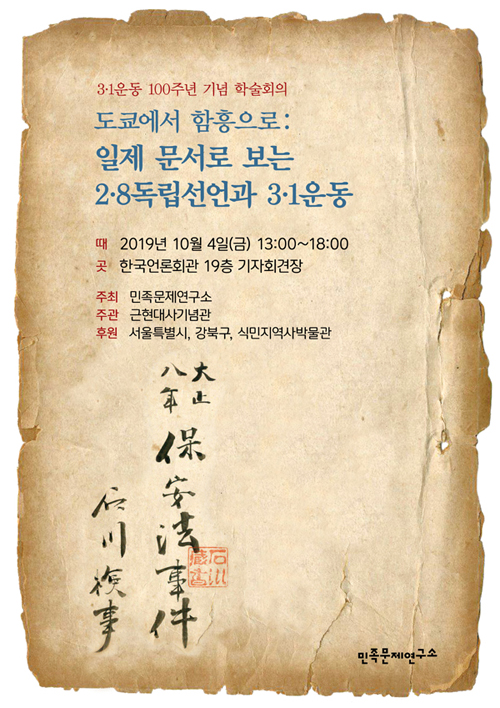 3·1운동 100주년 기념 학술회의
도쿄에서 함흥으로:
일제 문서로 보는
2·8독립선언과 3·1운동
때 2019년 10월 4일(금) 13:00~18:00
곳 한국언론회관 19층 기자회견장
주최 민족문제연구소
주관 근현대사기념관
후원 서울특별시, 강북구, 식민지역사박물관
大正
八年
保安法事件
石川検事
石川
蔵書
민족문제연구소